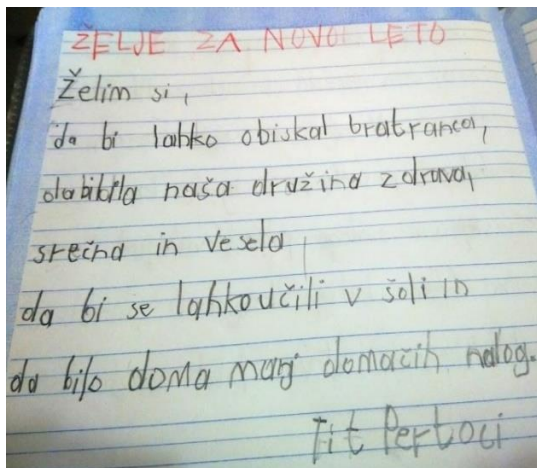 ŽELJE ZA NOVO LETO
Želim si,
da bi lahko obiskal bratranca,
da bi bila naša družina zdrava,
srečna in vesela,
da bi se lahko učili v šoli in
da bilo doma manj domačih nalog.
Tit Pertoci